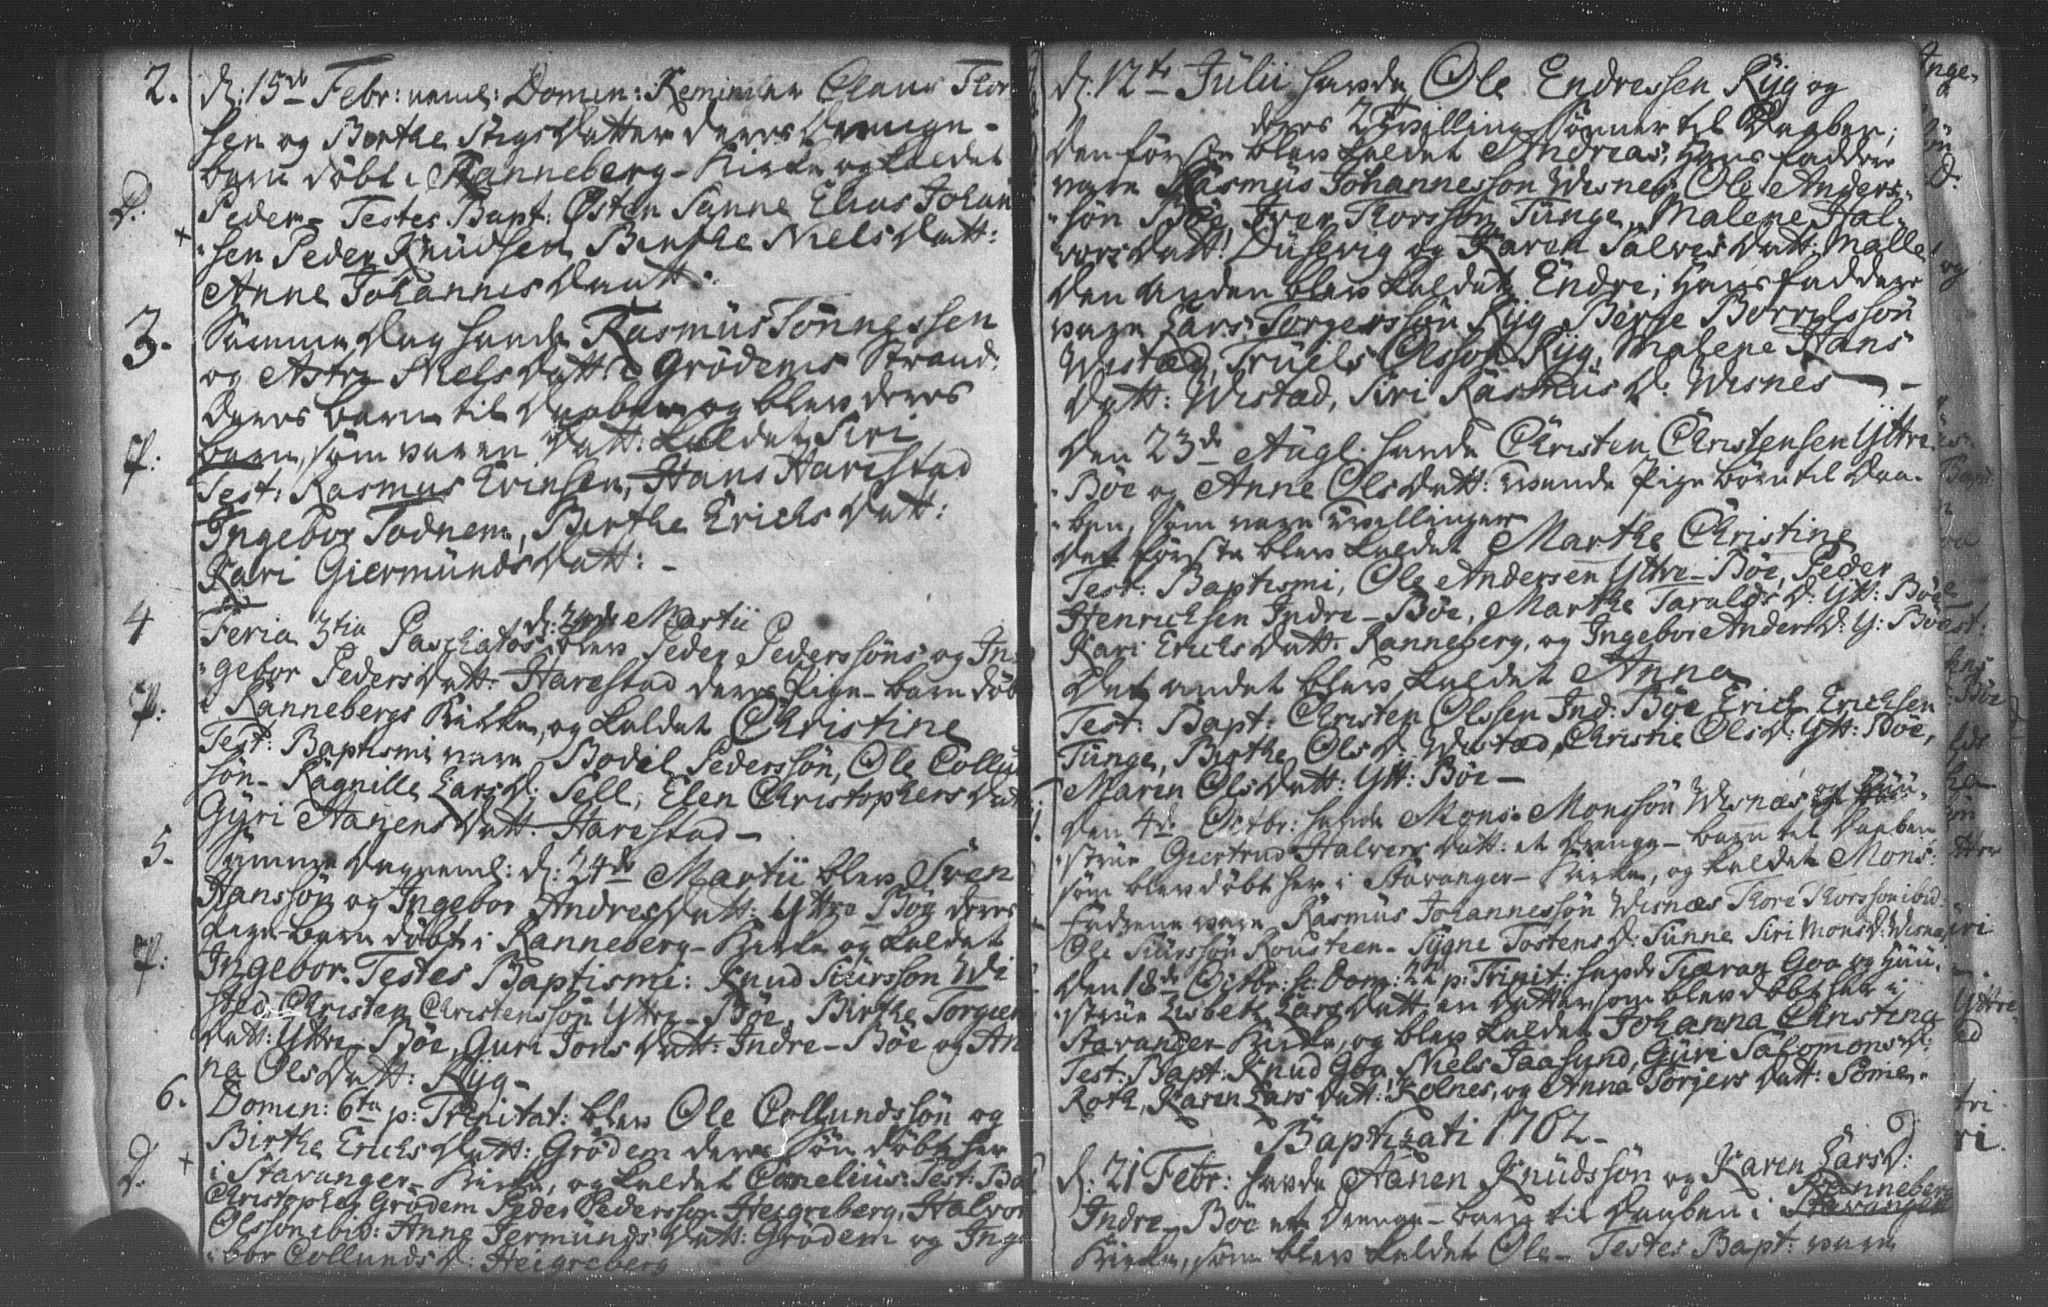 2. d: 15de Febr: neml: Domin: Reminisc: Claus Thor
sen og Berthe Stigs Datter deres Drenge-
barn döbt i Ranneberg-Kirke og kaldet
D. Peder- Testes Bapt: Östen Sunne Elias Johan
sen Peder Knudsen Birthe Niels Datt:
Anne Johannis Daatt:
3. Samme Dag hafde Rasmus Tönnessen
og Astri Niels Datt: Grödems Strand
deres barn til Daaben og blev deres
P. barn, som var en Datt: kaldet Siri
Test: Rasmus Evensen, Hans Harestad
Ingebor Todnem, Birthe Erichs Datt:
Kari Giermünds Datt: -
d: 24de Martii
4 Feria 3tia Paschatos blev Peder Peders söns og In-
gebor Peders Datt: Harestad deres Pige-barn döbt
P. i Rannebergs Kirke, og kaldet Christine
Test: Baptismi vare, Bodil Peders sön, Ole Collun
sön- Ragnille Lars D: Sell, Elen Christophers Datt:
Gyri Aanens Datt: Harestad-
5. Samme Dag neml: d: 24de Martii blev Sven
Hans sön og Ingebor Andres Datt: Yttre Böe deres
Pige-barn döbt i Ranneberg-Kirke og kaldet
P. Ingebor. Testes Baptismi: Knud Siurs sön Wi
stad Christen Christens sön Yttre-Böe, Birthe Torgiers
Datt: Yttre-Böe, Guri Jons Datt: Indre-Böe og An
na Ols Datt: Ryg-
6. Domin: 6ta p: Trinitat: blev Ole Collunds sön og
Birthe Erichs Datt: Grödem deres Sön döbt her
D. i Stavanger-Kirke, og kaldet Cornelius: Test: Bap
Christopher Grödem Peder Peders son Heigreberg, Halvor
Ols son ibid: Anne Jermunds Datt: Grödem og Inge
bor Collunds D: Heigreberg
d: 12te Julii hafde Ole Endressen Ryg og
deres 2 Tvilling Sönner til Daaben;
den förste blev kaldet Andreas; Hans faddere
vare Rasmus Johannes son Wisnes, Ole Anders-
sön Böe, Iver Thors son Tunge, Malene Hal-
vors Datt: Dusevig og Karen Salves Datt: Malle
den anden blev kaldet Endre; Hans faddere
vare Lars Torgers sön Ryg Berge Borrils sön
Wistad, Truels Ols son Ryg, Malene Hans
Datt: Wistad, Siri Rasmus D: Wisnes-
Den 23de Augl. hafde Christen Christensen Yttre
Böe og Anne Ols Datt: tvende Pige börn til Daa-
ben, som vare Tvillinger
det förste blev kaldet Marthe Christine
Test: Baptismi, Ole Andersen Yttre-Böe, Peder
Henrichsen Indre-Böe, Marthe Taralds D: Ytt: Böe
Kari Erichs Datt: Ranneberg, og Ingebor Anders D: Y: Böe
Det andet blev kaldet Anna
Test: Bapt: Christen Olssen Ind: Böe Erich Erichsen
Tunge, Birthe Ols D: Wistad, Christie Ols D: Ytt: Böe,
Maren Ols Datt: Ytt: Böe-
Den 4de Octbr: hafde Mons Mons sön Wisnæs og Huu-
strue Giertrud Halvers Datt: et Drenge-barn til Daaben
som blev döbt her i Stavanger-Kirke, og kaldet Mons:
Fadrene vare Rasmus Johannes sön Wisnæs Thore Thors son ibid
Ole Siurs sön Rousteen- Sygne Tostens D: Sunne Siri Mons D: Wisnæs
Den 18de Octbr: s: Dom: 22 p: Trinit: hafde Tiæran Goa og Huu-
strue Lisbet Lars Datt: en Datter, som blev döbt her i
Stavanger-Kirke, og blev kaldet Johanna Christina
Test: Bapt: Knud Goa Niels Saasund, Guri Salomons D:
Roth, Karen Lars Datt: Kolnes, og Anna Torjers Datt: Some-
Baptizati 1762-
d: 21 Febr: hafde Aanen Knuds sön og Karen Lars D:
Indre-Böe et Drenge-barn til Daaben i Stavanger Ranneberg
Kirke, som blev kaldet Ole- Testes Bapt: vare